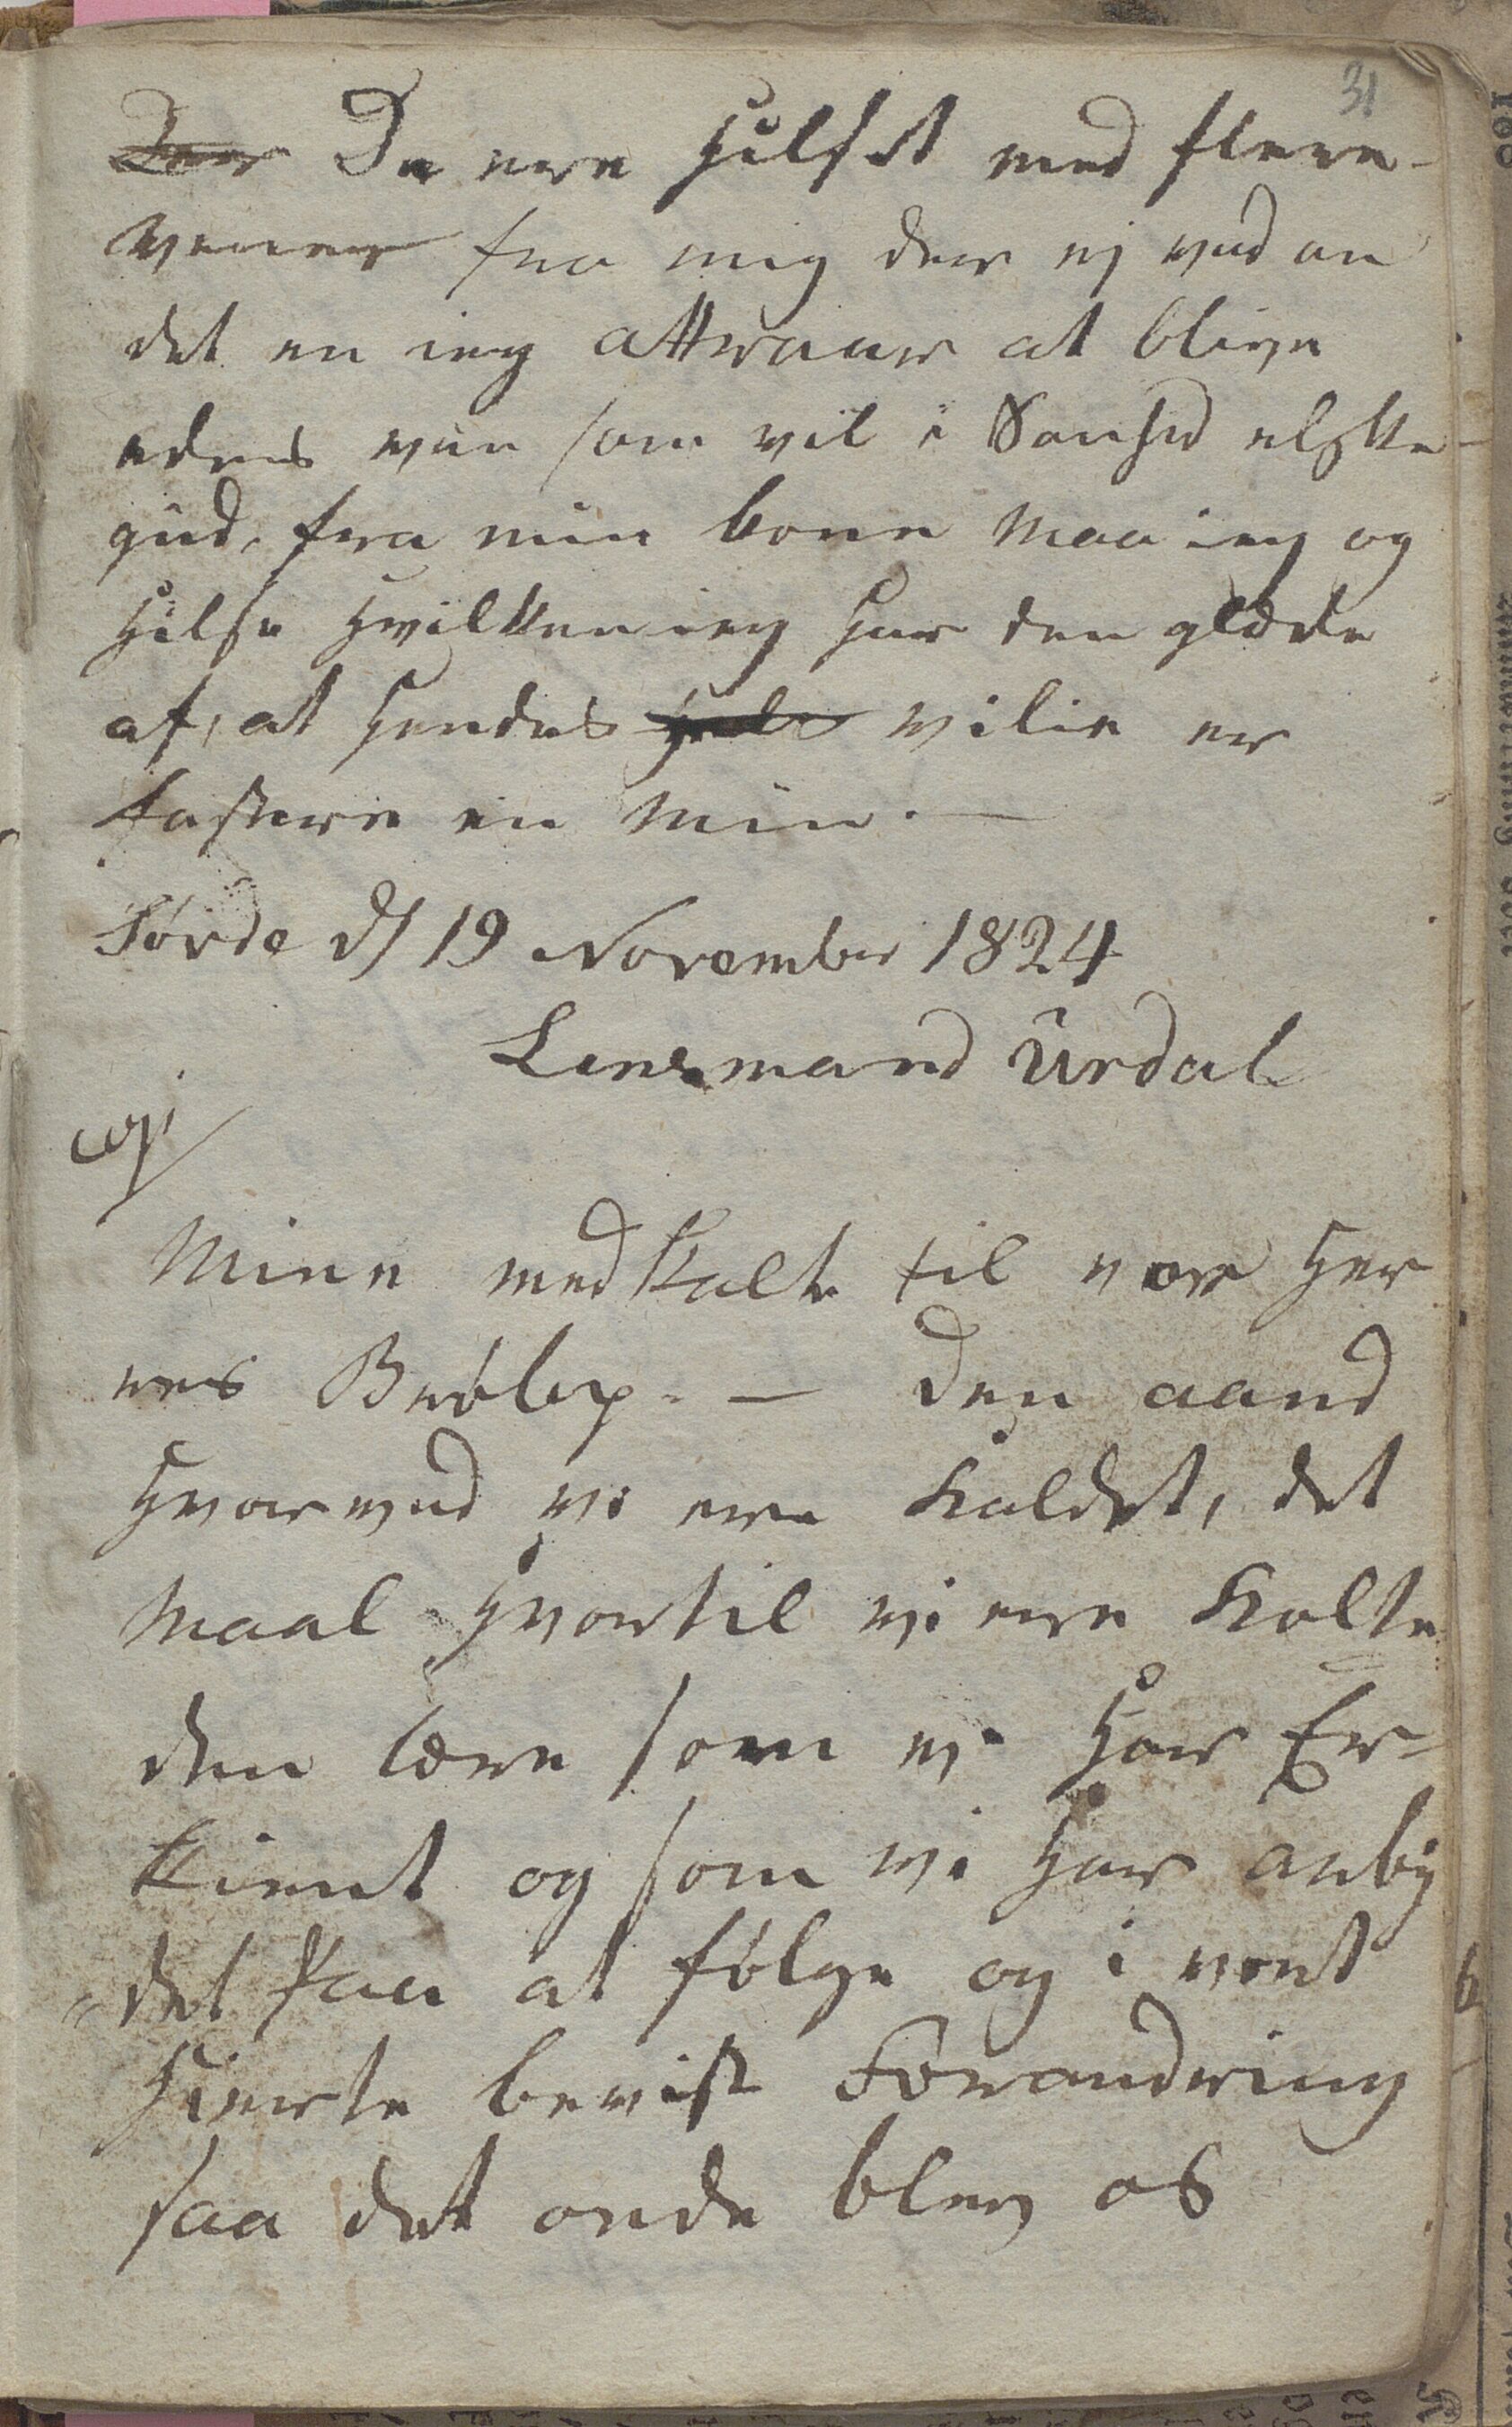 31
Der De ere hilset med flere
venner fra mig der ej ved an
det en ieg attraaer at blive
eders ven som vil i Sanhed elske
gud, fra min kone Maa ieg og
hilse hvilken ieg har den glæde
af, at hendes hele vilie er
fastere en Min. —
Førde d/ 19 November 1824
Lensmand Urdal
copi
Mine medkalte til vor Her
res Brølop. — den aand
hvorved vi ere Kaldet, det
Maal hvortil vi ere Kalte
den lære som vi har Er-
kient og som vi har anby
„det paa at følge og i vort
Hierte bevist Forandring
saa det onde blev os